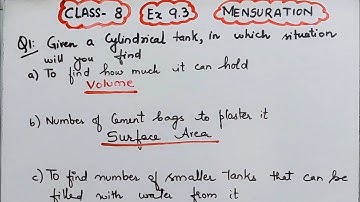 CLASS- 8 Ex 9.3 MENSURATION
Q1: Given a Cylindrical tank, in which situation
will you find
a) To find how much it can hold
Volume
b) Number of Cement bags to plaster it
Surface Area
c) To find number of smaller tanks that can be
filled with water from it